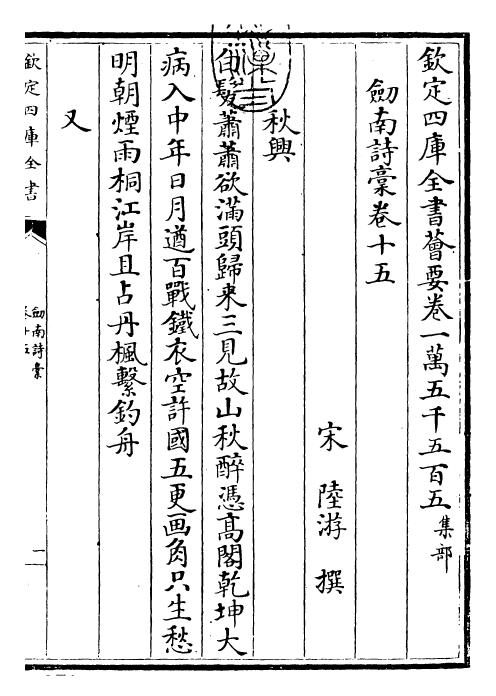 欽定四庫全書薈要卷一萬五千五百五 集部
劒南詩稾卷十五
宋 陸游 撰
秋興
白髮蕭蕭欲滿頭歸来三見故山秋醉憑髙閣乾坤大
病入中年日月遒百戰鐵衣空許國五更画角只生愁
明朝煙雨桐江岸且占丹楓繫釣舟
又
欽定四庫全書
劒南詩稾
卷十五
一